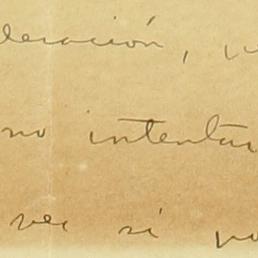 leración,
no intentar
ver si